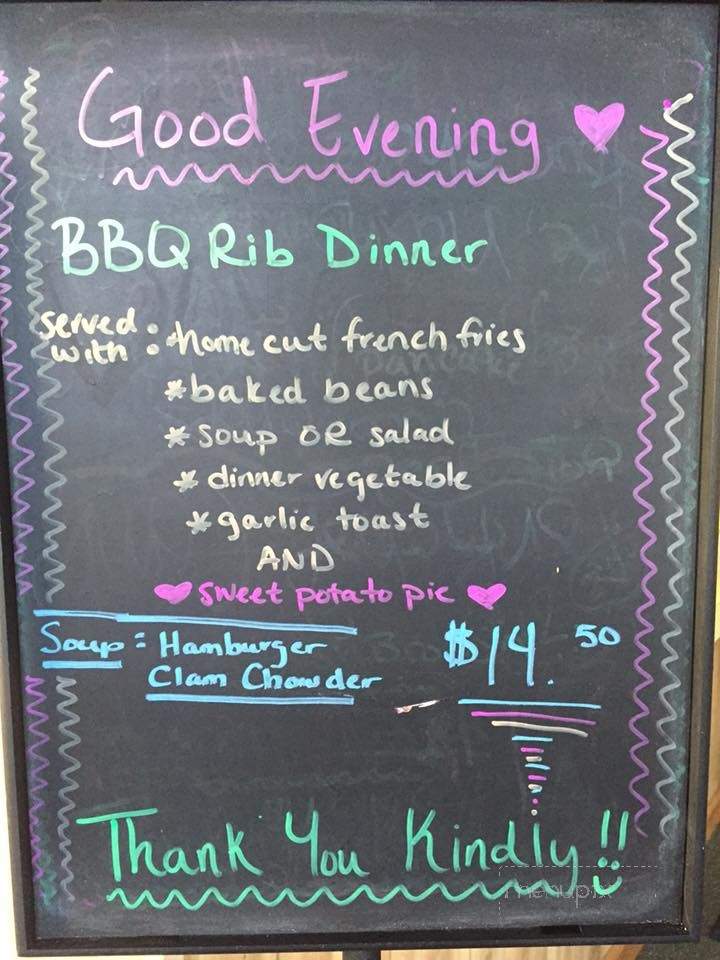 Good Evening
BBQ Rib Dinner
served with : *home cut french fries
*baked beans
*soup OR salad
*dinner vegetable
*garlic toast
AND
sweet potato pie
Soup : Hamburger
Clam Chowder
$14.50
Thank You Kindly!!
menupix